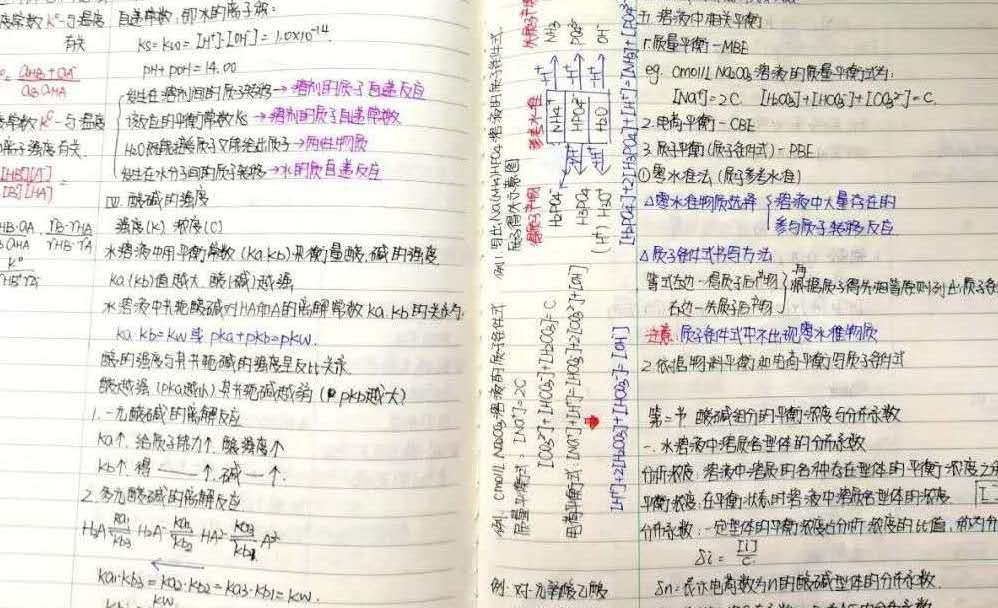 自递常数,即水的离子积:
有关
Ks=Kw=[H⁺]·[OH⁻]=1.0×10⁻¹⁴
pH+pOH=14.00
发生在溶剂间的质子转移→溶剂的质子自递反应
该反应的平衡常数Ks→溶剂的质子自递常数
H₂O既能给质子又能给出质子→两性物质
发生在水分子间的质子转移→水的质自递反应
Ⅳ.酸碱的强度
强度(K) 浓度(C)
水溶液中用平衡常数(Ka.Kb)来衡量酸.碱的强度
Ka(Kb)值越大.酸(碱)越强
水溶液中共轭酸碱对HA和A的离解常数Ka.Kb的关系为:
Ka·Kb=Kw或pKa+pKb=pKw.
酸的强度与其共轭碱的强度呈反比关系.
酸越强(pKa越小).其共轭碱越弱(pKb越大)
1.一元酸碱的离解反应
Ka↑.给质子能力↑.酸强度↑
Kb↑.得——↑.碱—↑.
2.多元酸碱的离解反应
H₃A Ka₁ Kb₃ H₂A⁻ Ka₂ Kb₂ HA²⁻ Ka₃ Kb₁ A³⁻
Ka₁·Kb₃=Ka₂·Kb₂=Ka₃·Kb₁=Kw.
例:写出Na(NH₄)HPO₄溶液的质子条件式.
得质子产物
H₂PO₄⁻
H₃PO₄
(H⁺)H₃O⁺
参考水准
NH₄⁺
HPO₄²⁻
H₂O
失质子产物
NH₃
PO₄³⁻
OH⁻
[H₂PO₄⁻]+2[H₃PO₄]+[H⁺]=[NH₃]+[PO₄³⁻]
例:Cmol/L Na₂CO₃溶液的质子条件式
质量平衡式:[Na⁺]=2C
[CO₃²⁻]+[HCO₃⁻]+[H₂CO₃]=C
电荷平衡式:[Na⁺]+[H⁺]=[HCO₃⁻]+2[CO₃²⁻]+[OH⁻]
[H⁺]+2[H₂CO₃]+[HCO₃⁻]=[OH⁻]
例:对一元弱酸乙酸
五.溶液中相关平衡
1.质量平衡-MBE
eg. Cmol/L Na₂CO₃溶液的质量平衡式为:
[Na⁺]=2C [H₂CO₃]+[HCO₃⁻]+[CO₃²⁻]=C.
2.电荷平衡-CBE
3.质子平衡(质子条件式)-PBE
①零水准法(质子参考水准)
△零水准物质选择 溶液中大量存在的
参与质子转移反应.
△质子条件式书写方法
等式左边-得质子后产物
右边-失质子后产物
根据质子得失相等原则列出质子条
注意:质子条件式中不出现零水准物质
2.依据物料平衡和电荷平衡写质子条件式
第二节 酸碱组分的平衡浓度与分布系数
一.水溶液中溶质各型体的分布系数
分析浓度:溶液中溶质的各种存在型体的平衡浓度之
平衡浓度:在平衡状态时溶液中溶质各型体的浓度
分布系数:一定型体的平衡浓度占分析浓度的比值,称为分
δi=[i]/C
δn:表示电荷数为n的酸碱型体的分布系数.